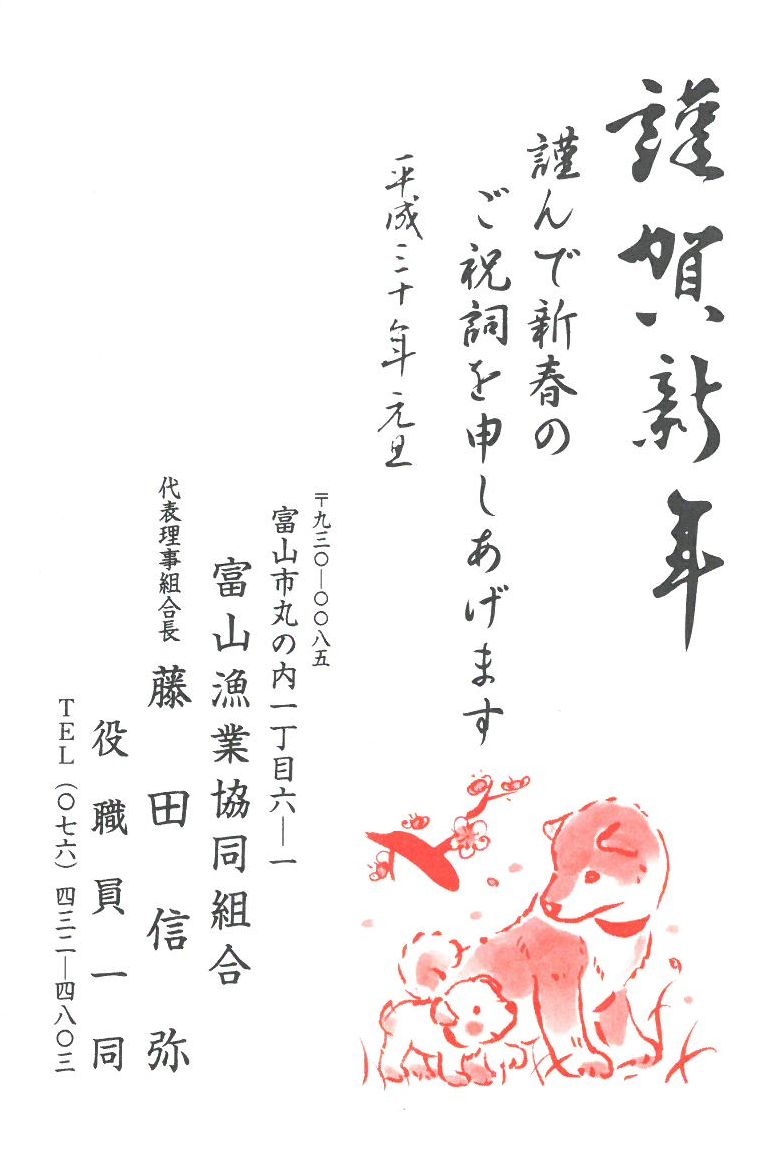 謹賀新年
謹んで新春の
ご祝詞を申しあげます
平成三十年元旦
〒九三〇―〇〇八五
富山市丸の内一丁目六―一
富山漁業協同組合
代表理事組合長 藤田信弥
役職員一同
TEL(〇七六)四三二―四八〇三